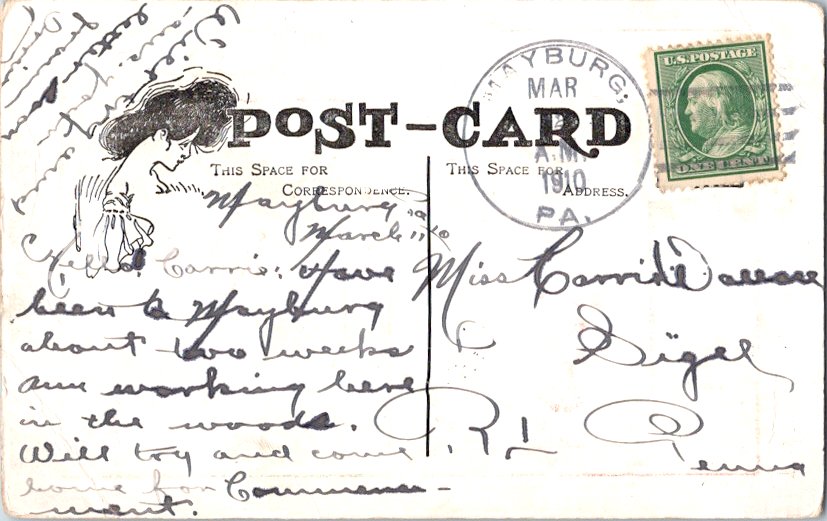 POST-CARD
THIS SPACE FOR
CORRESPONDENCE.
THIS SPACE FOR
ADDRESS.
MAYBURG,
MAR
A.M.
1910
PA.
U.S. POSTAGE
ONE CENT
Mayburg, Pa
March 11, 10
Hello Carrie: Have
been to Mayburg
about two weeks
am working here
in the woods.
Will try and come
home for Commence-
ment.
Will
letter
and
Miss Carrie
Sigel
R1
Penna